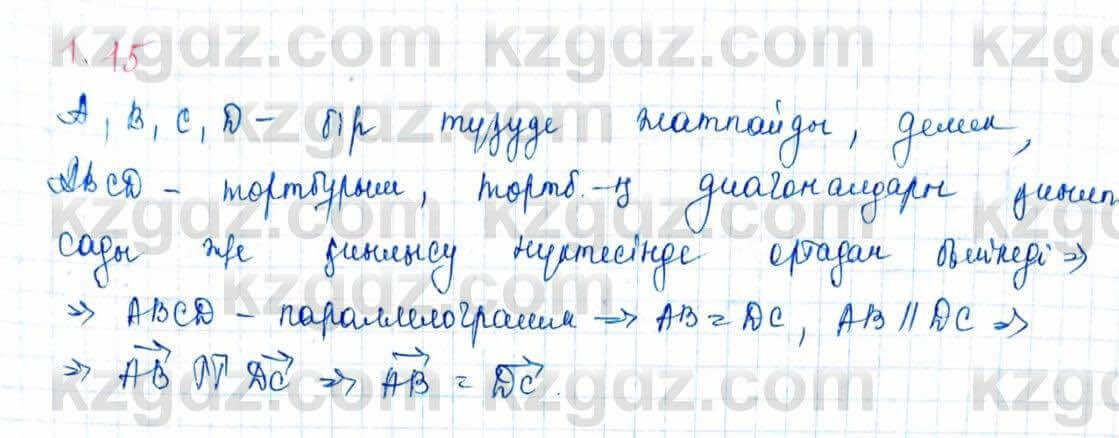 1.15
A, B, C, D – бір түзуде жатпайды, демек,
ABCD – төртбұрыш, төртб.-ң диагоналдары қиылы
сады және қиылысу нүктесінде ортадан бөлінеді ⇒
⇒ ABCD – параллелограмм ⇒ AB = DC, AB || DC ⇒
⇒ AB ↑↑ DC ⇒ AB = DC.
kzgdz.com kzgdz.com kzgdz.com